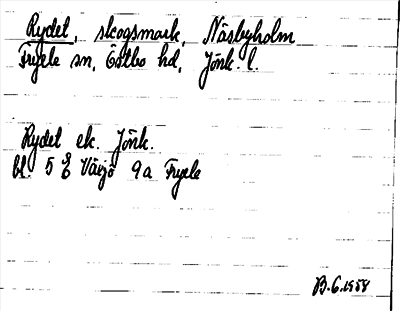 Rydet, skogsmark, Näsbyholm
Fryele sn, Östbo hd, Jönk. l.
Rydet ek. Jönk.
bl. 5 E Värjö 9a Fryele
B.G. 1958